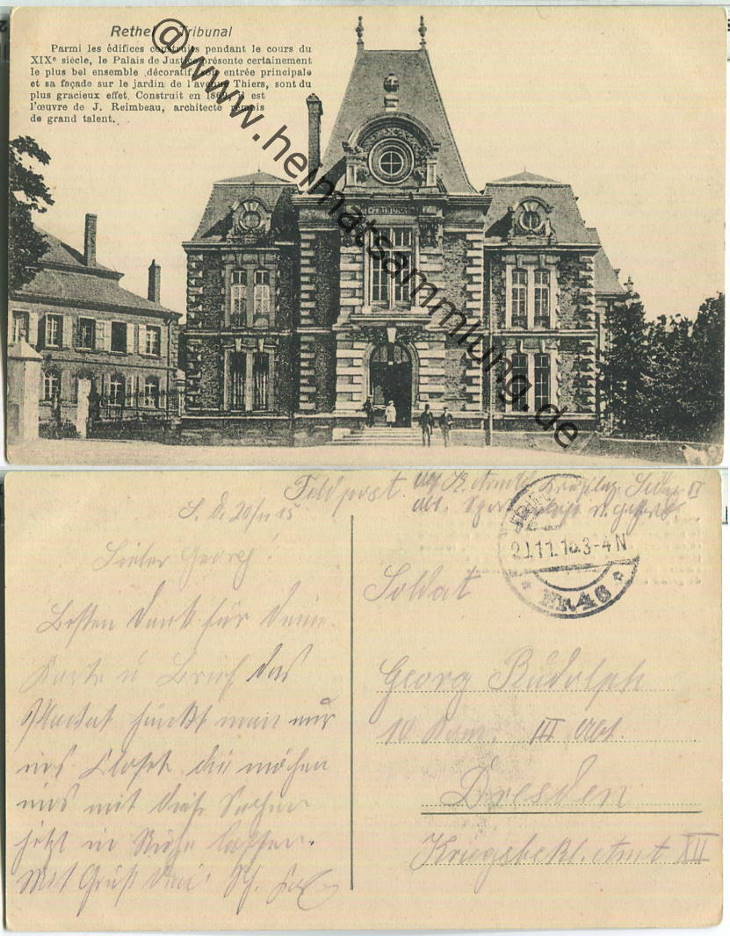 Rethel Tribunal
Parmi les édifices construits pendant le cours du
XIXe siècle, le Palais de Justice présente certainement
le plus bel ensemble décoratif. Son entrée principale
et sa façade sur le jardin de l'avenue Thiers, sont du
plus gracieux effet. Construit en il est
l'œuvre de J. Reimbeau, architecte rémois
de grand talent.
@www.heimatsammlung.de
TRIBUNAL
Feldpost.
20/11 15
Lieber Georg!
Besten Dank für Deine
Karte u Brief das
man nur
ins Closet, die möchen
uns mit diese Sachen
jetzt in Ruhe lassen.
Mit Gruß Dein
3-4N
Soldat
Georg Rudolph
10 Kom. III Abt.
Dresden
Kriegsbekl. Amt XII